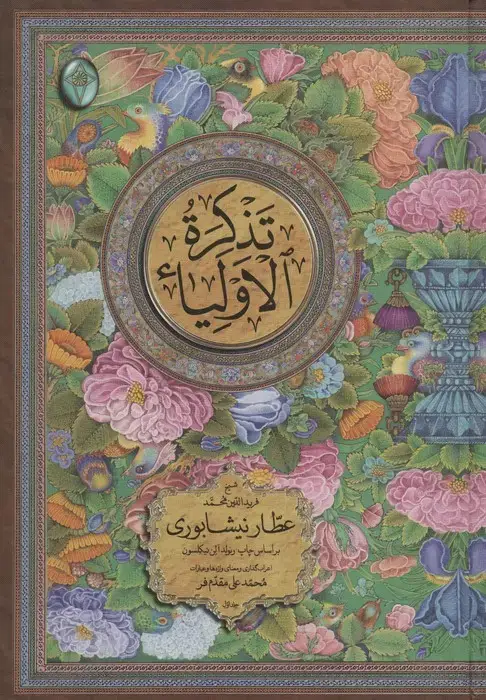 تَذکِرَةُ
الاَولیاء
شیخ
فریدالدین محمّد
عطّار نیشابوری
بر اساس چاپ رینولد آلن نیکلسون
اعراب‌گذاری و معنای واژه‌ها و عبارات
مُحمّد علی مقدّم فر
جلد اول